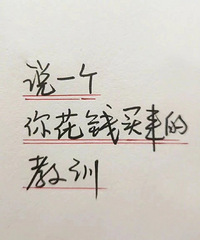 说一个
你花钱买来的
教训